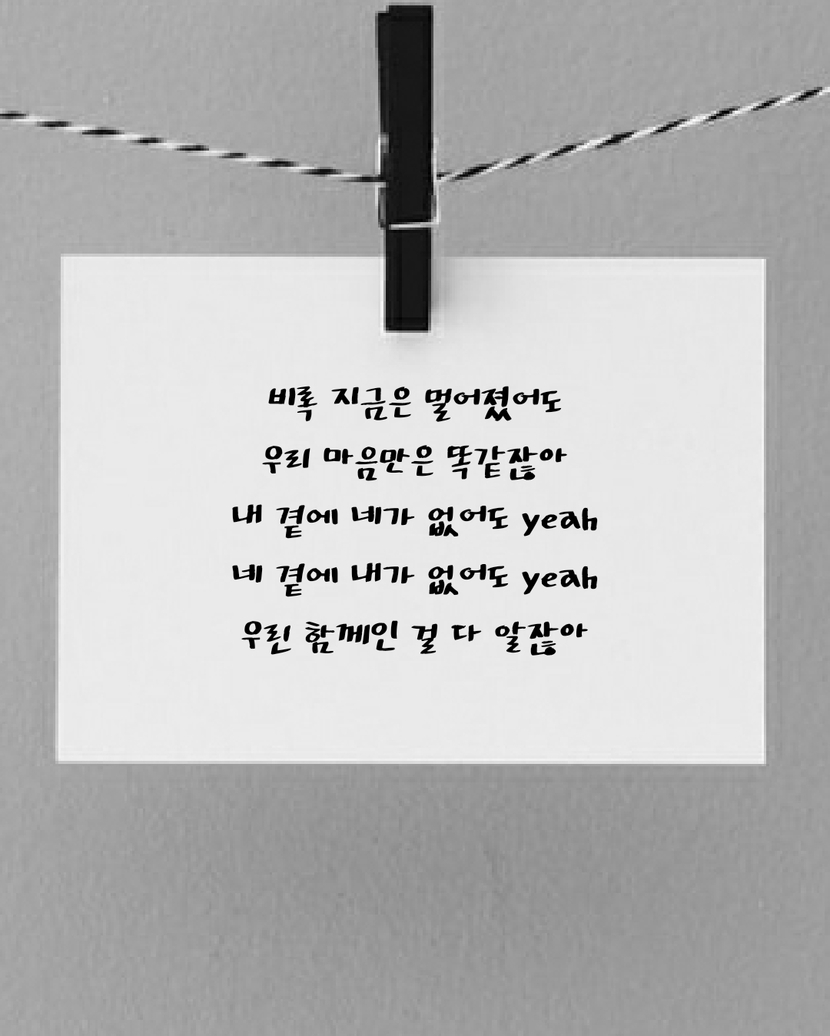 비록 지금은 멀어졌어도
우리 마음만은 똑같잖아
내 곁에 네가 없어도 yeah
네 곁에 내가 없어도 yeah
우린 함께인 걸 다 알잖아